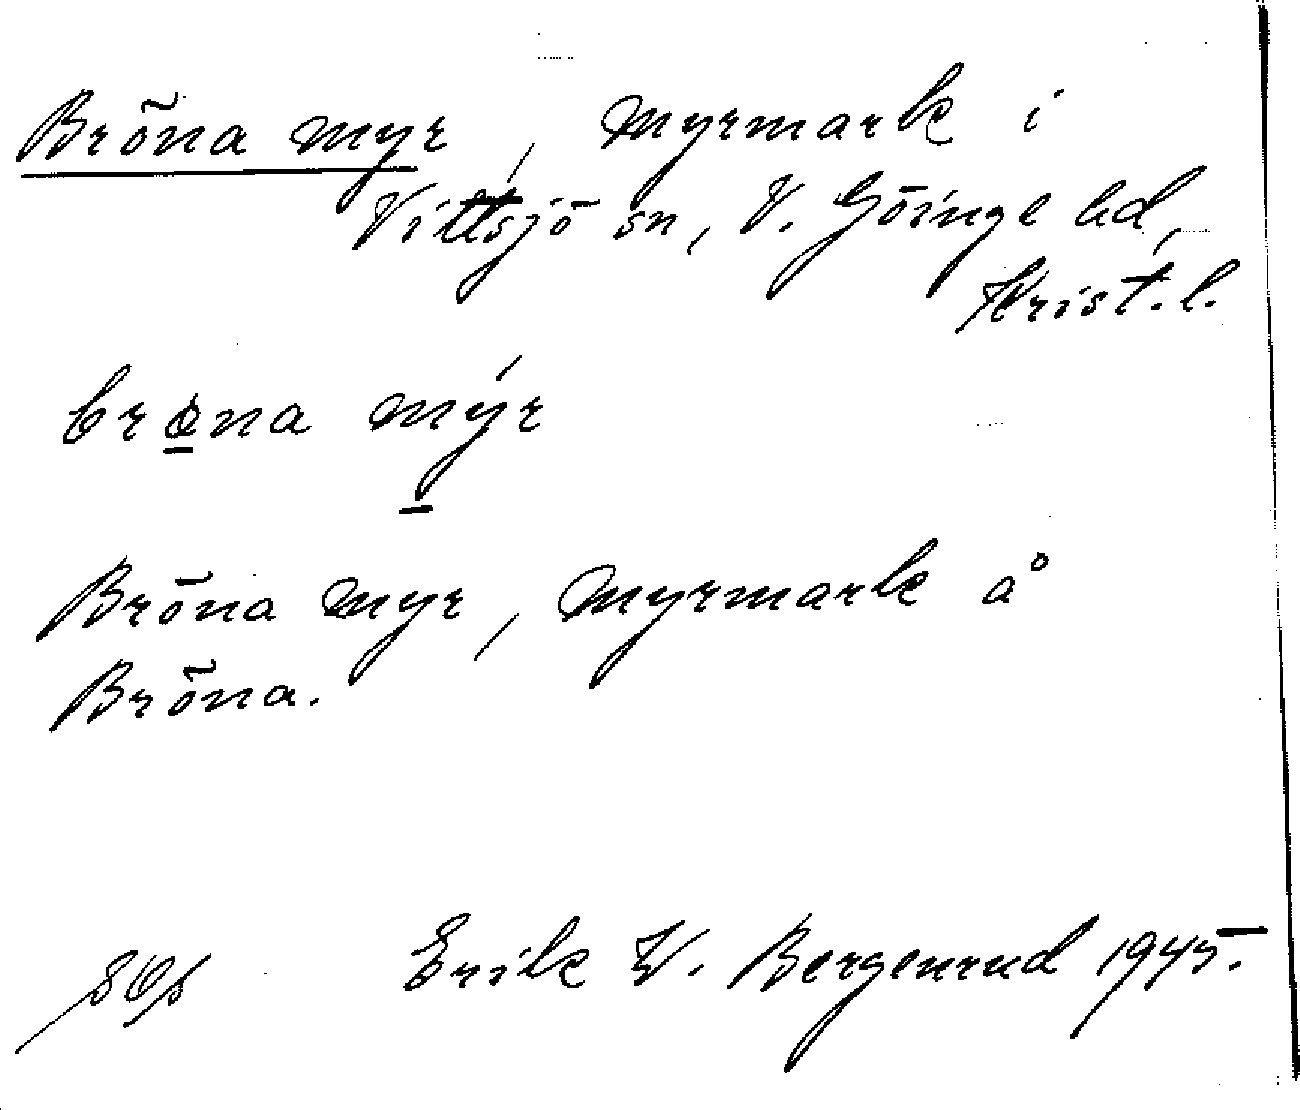 Brõna myr, myrmark i
Vittsjö sn, V. Göinge hd,
Krist.l.
brø̲na mýr
Brõna myr, myrmark å
Brõna.
Erik W. Bergenrud 1945.